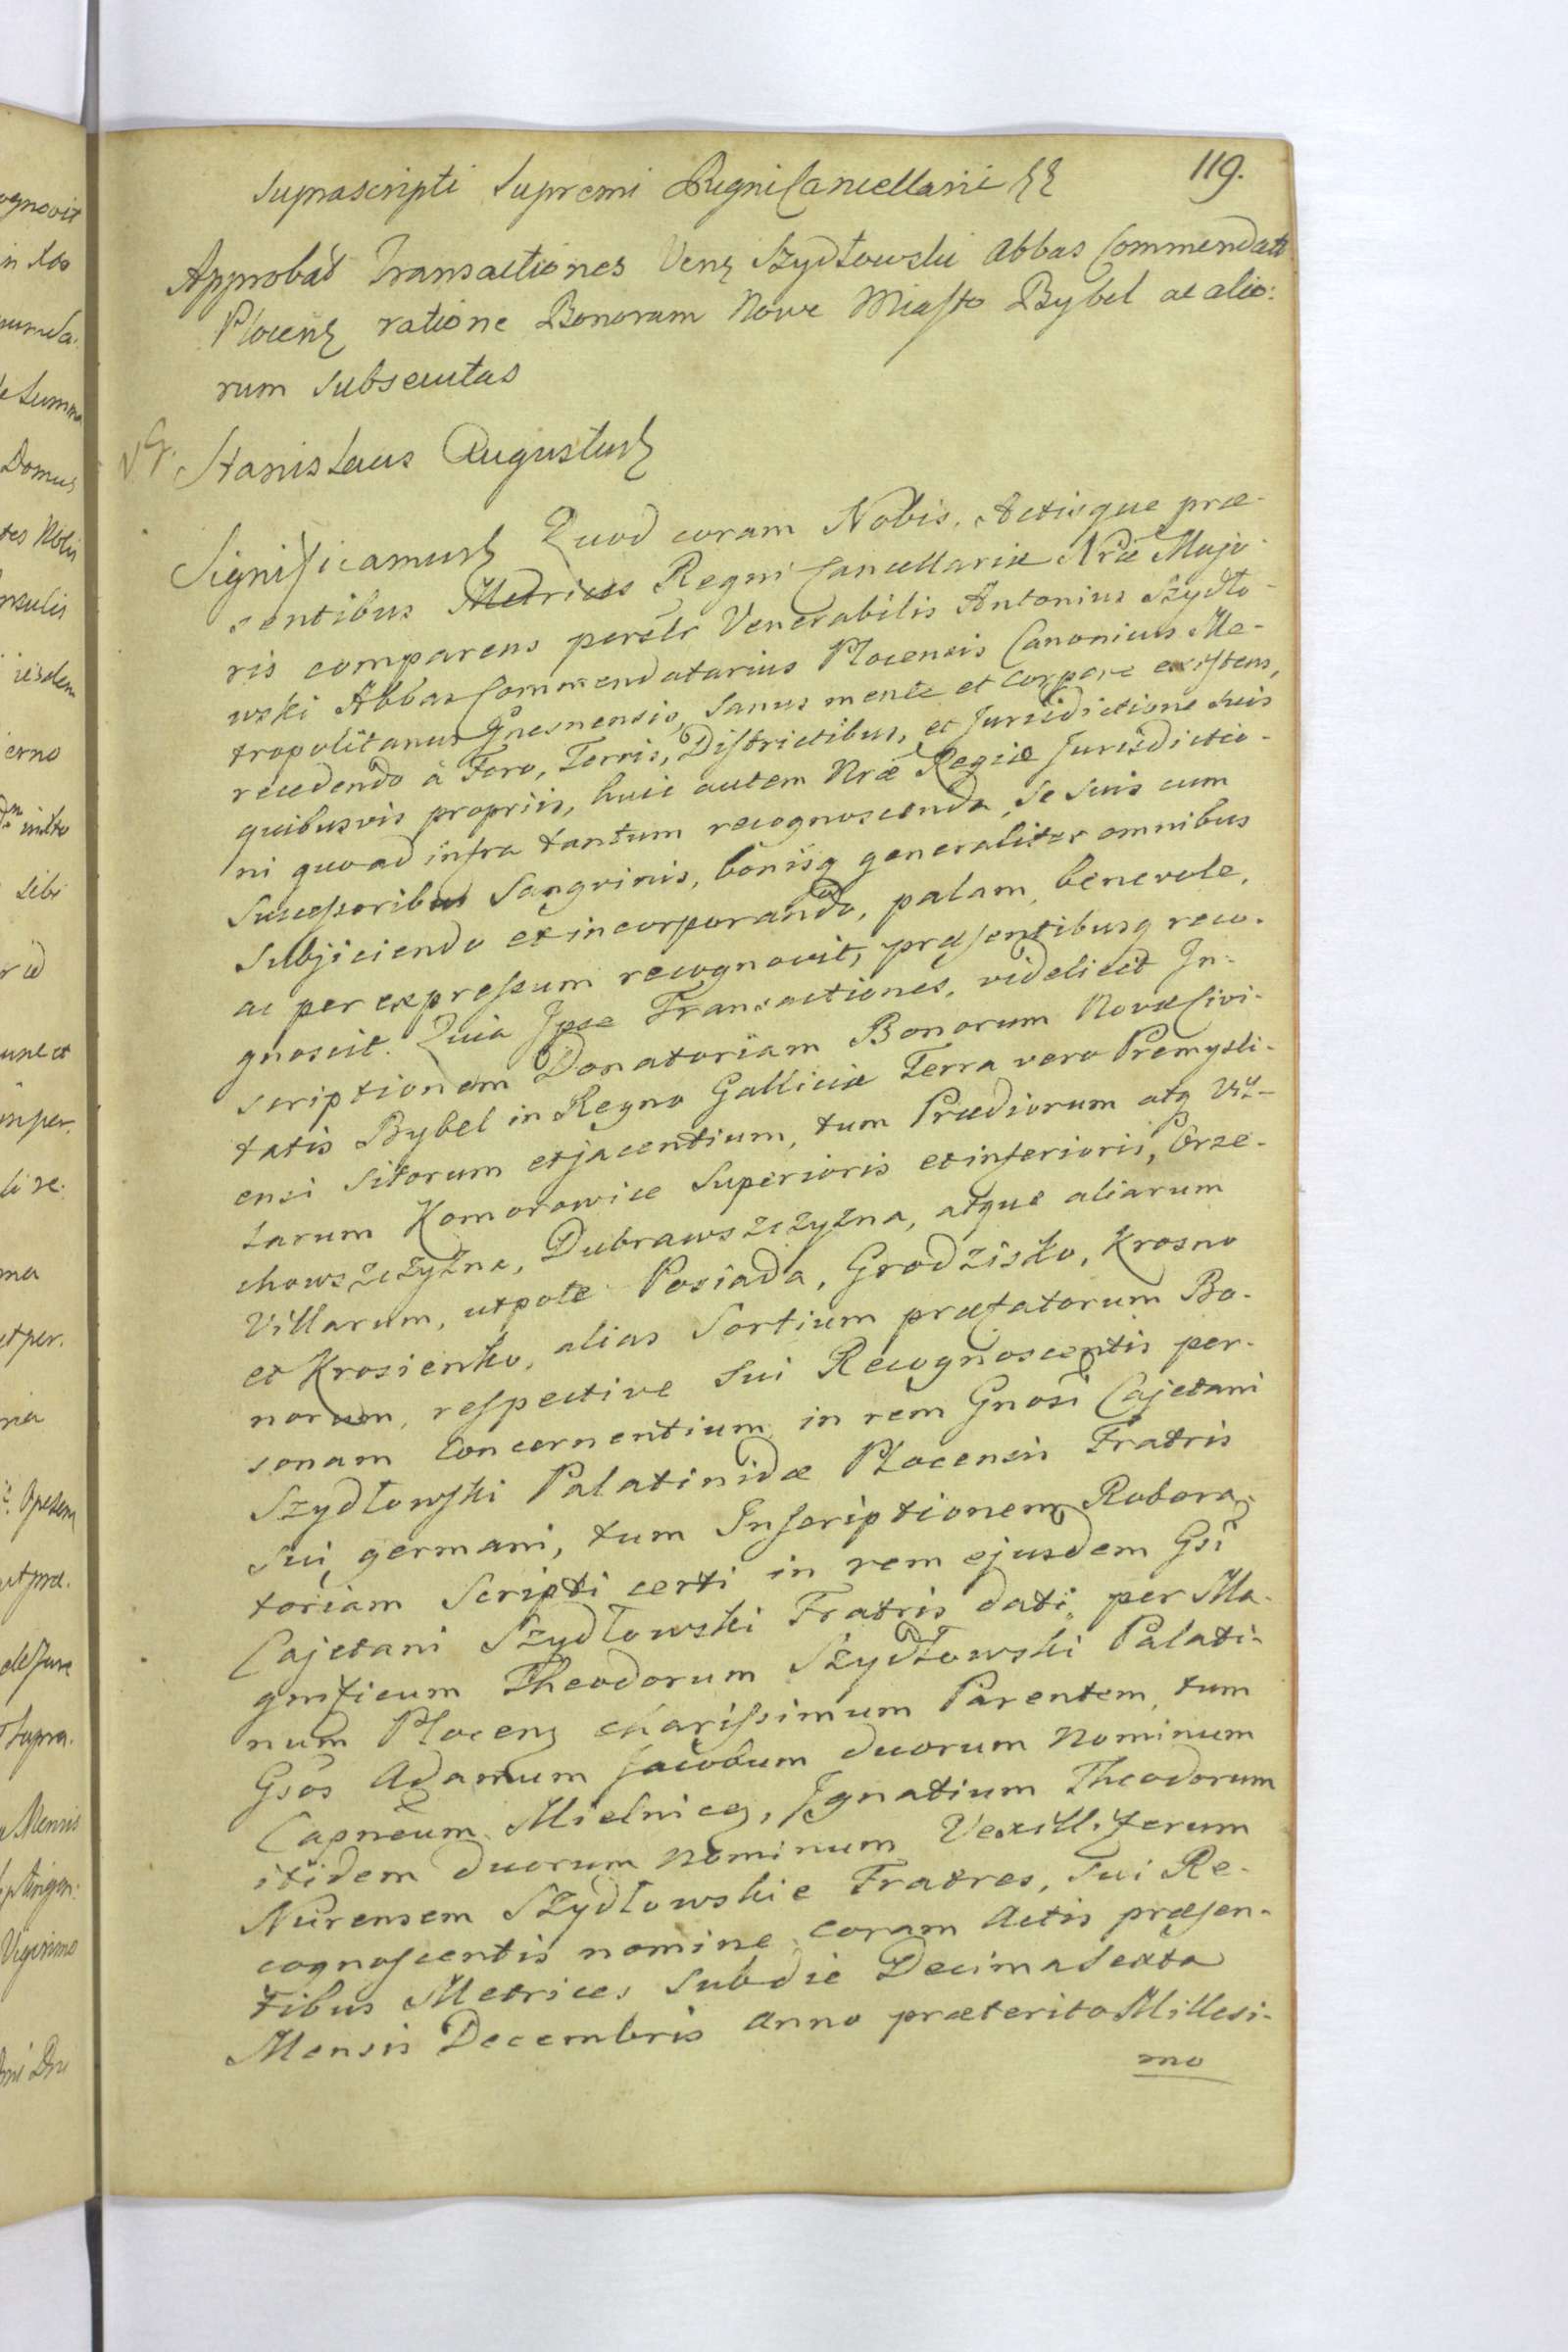 119.
Suprascripti Supremi Regni Cancellarii
Approbat Transactiones Ven Szydłowski Abbas Commendat
Plocen ratione Bonorum Nowe Miasto Bybel ac alio:
rum subsecutas
Stanislaus Augustus
Significamus Quod coram Nobis, Actisque præ-
sentibus Metrices Regni Cancellariæ Nræ Majo-
ris comparens persłr Venerabilis Antonius Szydło-
wski Abbas Commendatarius Plocensis Canonicus Me-
tropolitanus Gnesnensis, sanus mente et corpore existens,
recedendo à Foro, Terris, Districtibus, et Jurisdictione suis
quibusvis propriis, huic autem Nræ Regiæ Jurisdictio-
ni quoad infra tantum recognoscenda, se suis cum
Successoribus Sangvinis, bonisq generaliter omnibus
subjiciendo et incorporando, palam, benevole,
ac per expressum recognovit, præsentibusq reco-
gnoscit. Quia Ipse Transactiones, videlicet In-
scriptionem Donatoriam Bonorum Novæ Civi-
tatis Bybel in Regno Galliciæ Terra vero Premysli-
ensi sitorum et jacentium, tum Prædiorum atq Vil-
larum Komorowice Superioris et inferioris, Orze-
chowszczyzna, Dubrawszczyzna, atque aliarum
Villarum, utpote Posiada, Grodzisko, Krosno
et Krosienko, alias Sortium præfatorum Bo-
norum, respective sui Recognoscentis per-
sonam concernentium in rem Gnosi Cajetani
Szydłowski Palatinidæ Plocensis Fratris
sui germani, tum Inscriptionem Robora-
toriam Scripti certi in rem ejusdem Gsi
Cajetani Szydłowski Fratris dati, per Ma-
gnificum Theodorum Szydłowski Palati-
num Plocen charissimum Parentem, tum
Gsos Adamum Jacobum duorum Nominum
Capneum Mielnicen, Ignatium Theodorum
itidem duorum Nominum Vexilliferum
Nurensem Szydłowskie Fratres, sui Re-
cognoscentis nomine coram Actis præsen-
tibus Metrices sub die Decima Sexta
Mensis Decembris Anno præterito Millesi-
mo